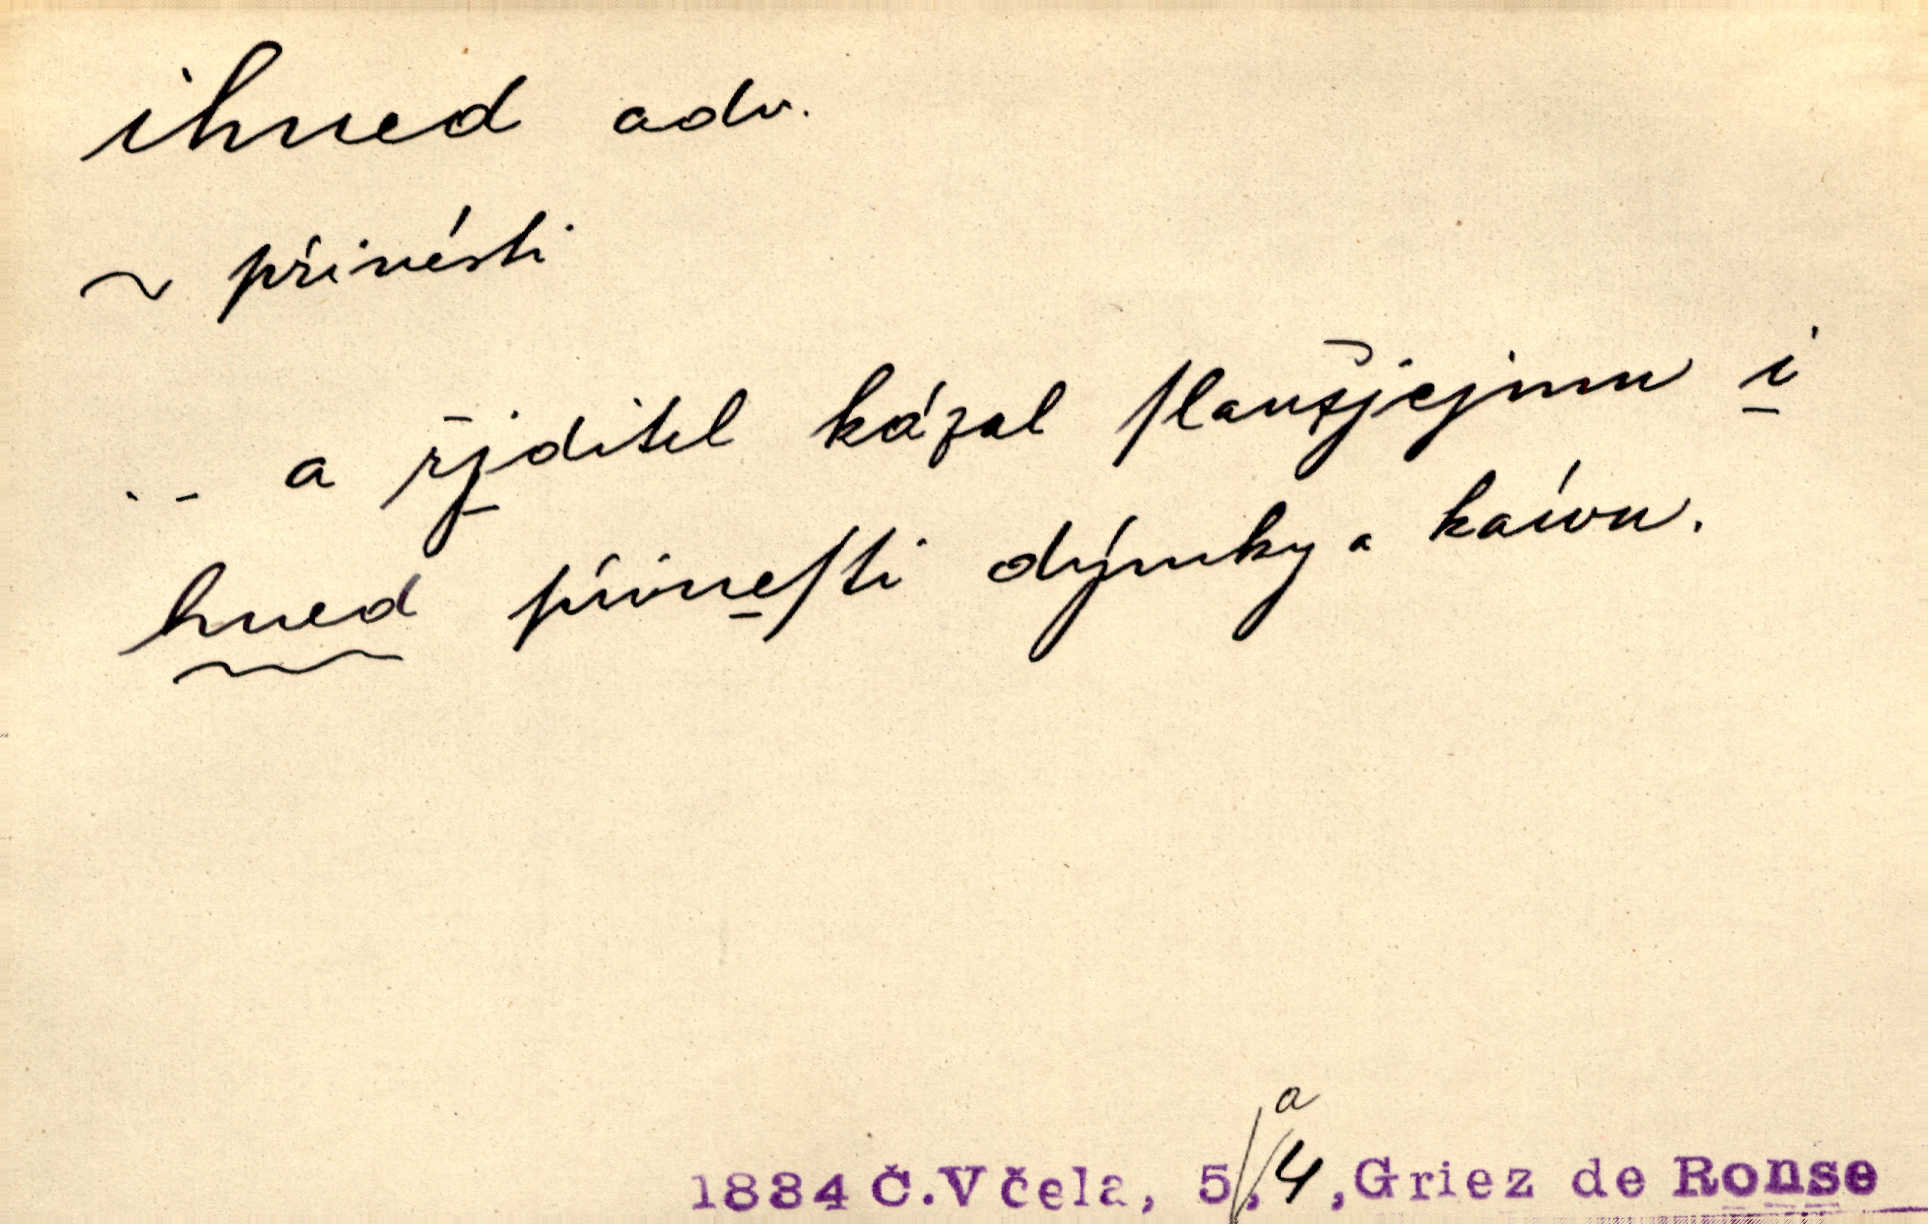 ihned adv.
~ přinésti
.. a řjditel kázal ſlaužjcjmu i
hned přineſti dýmky a kávu.
a
1834 Č.Včela, 5/,4,Griez de Ronse